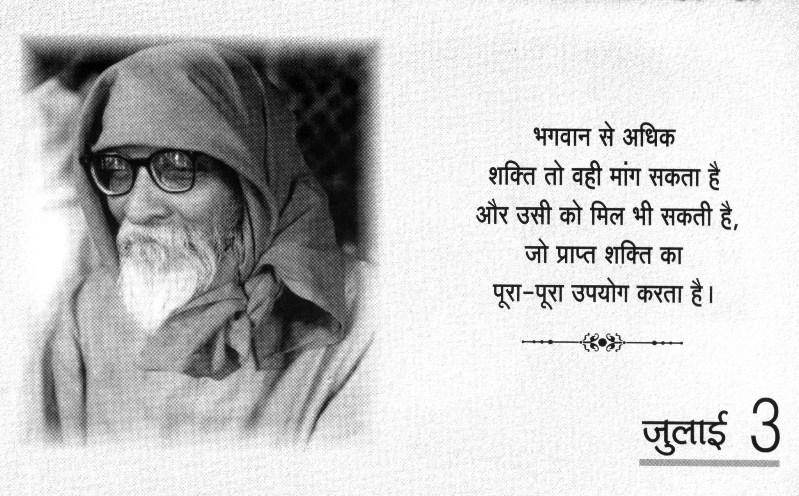 भगवान से अधिक
शक्ति तो वही मांग सकता है
और उसी को मिल भी सकती है,
जो प्राप्त शक्ति का
पूरा-पूरा उपयोग करता है।
जुलाई 3